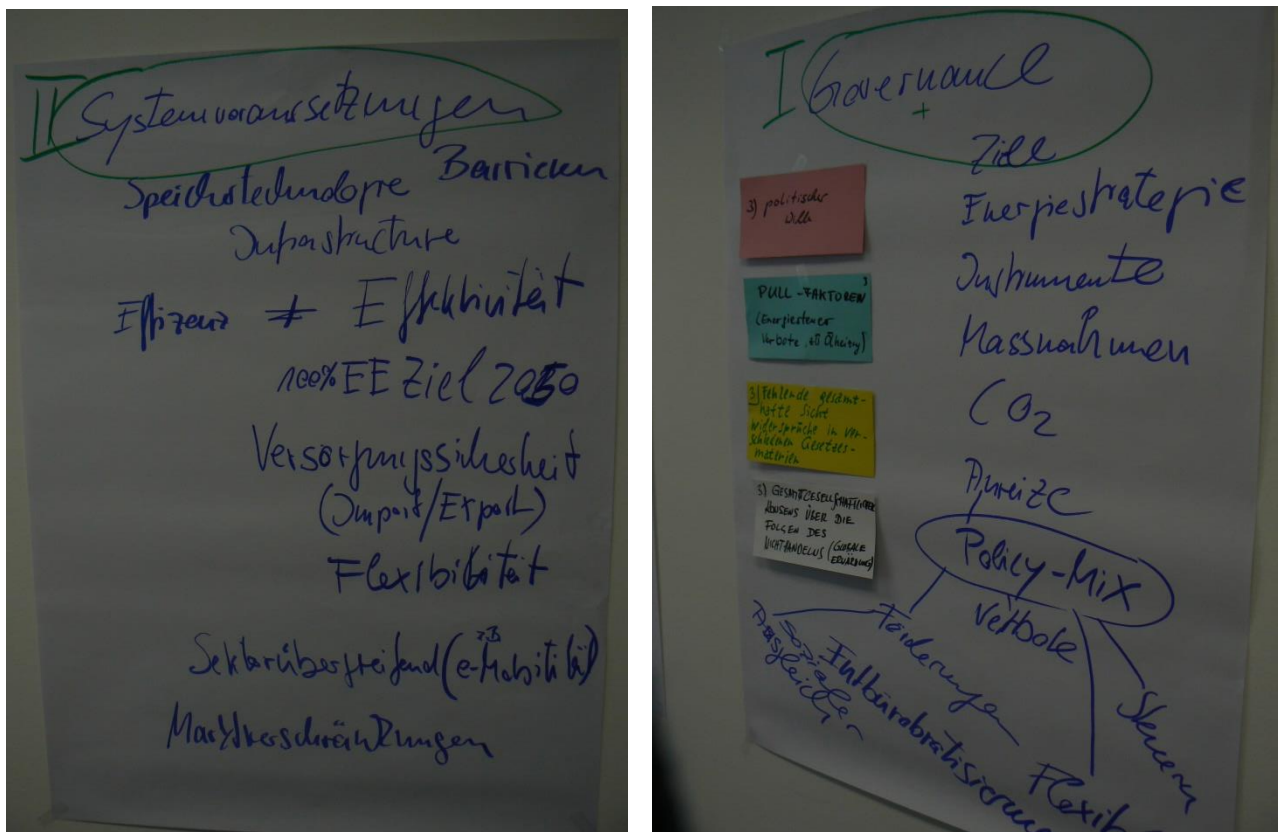 II Systemvoraussetzungen
Barrieren
Speichertechnologie
Infrastructure
Effizenz ≠ Effektivität
100% EE Ziel 2050
Versorgungssicherheit
(Import/Export)
Flexibilität
zB
Sektorübergreifend (e-Mobilität)
Marktverschränkungen
I Governance
+
Ziele
Energiestrategie
Instrumente
Massnahmen
CO2
Anreize
Policy-Mix
Verbote
Förderungen
Steuern
Sozialer
Ausgleich
Entbürokratisierun
Flexib
3) politischer
Wille
PULL-FAKTOREN 3
(Energiesteuer
Verbote, zB Ölheizung)
3) Fehlende gesamt-
hafte Sicht
widersprüche in ver-
schiedenen Gesetzes-
materien
3) GESAMTGESELLSCHAFTLICHER
KONSENS ÜBER DIE
FOLGEN DES
NICHTHANDELNS (GLOBALE
ERWÄRMUNG)